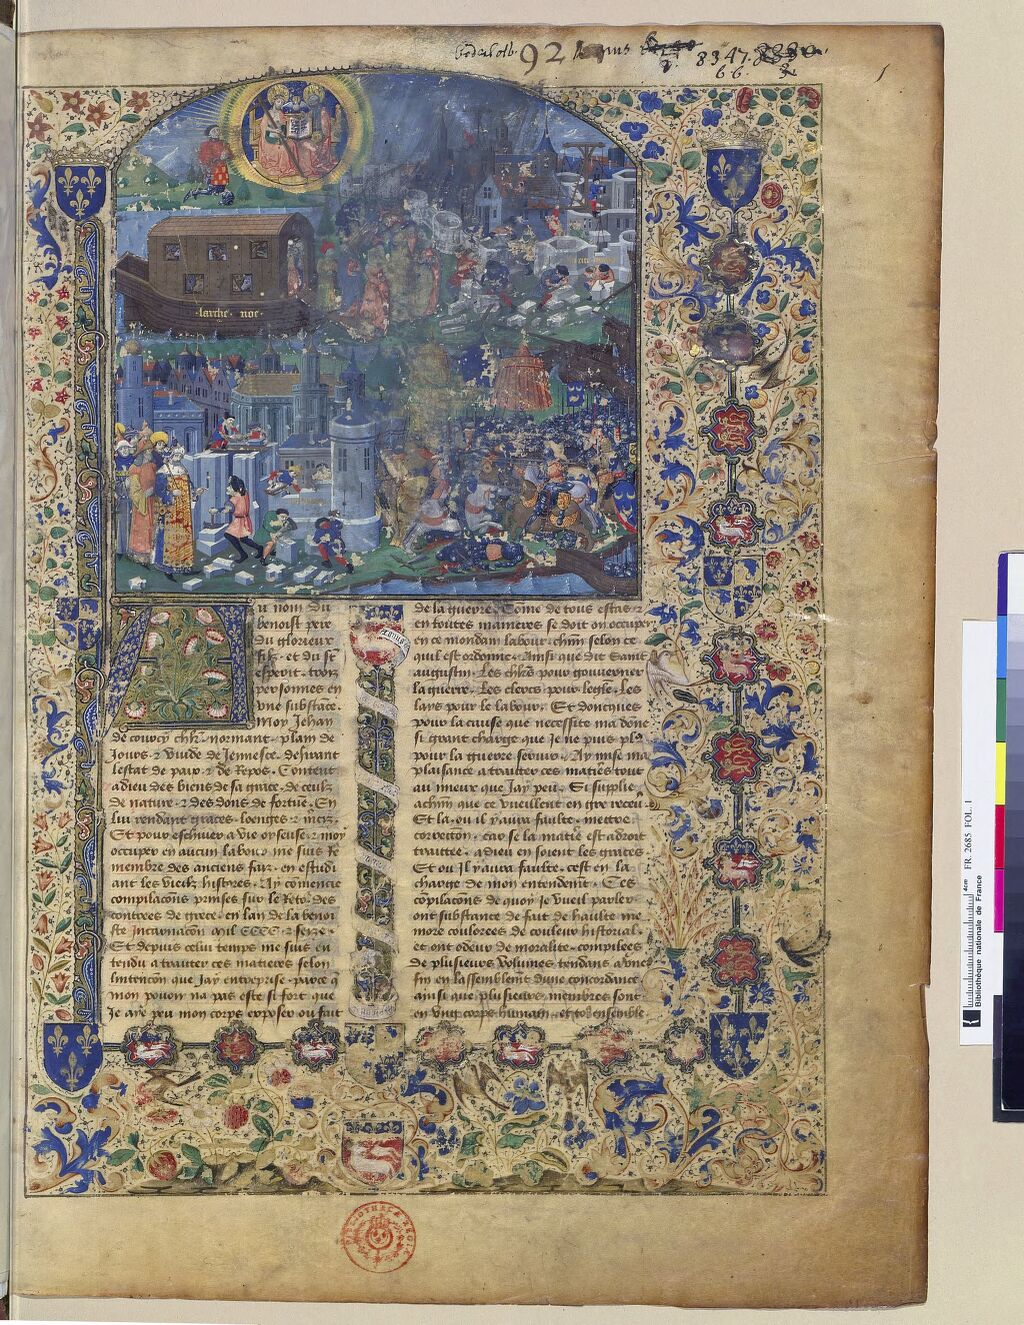 92
8347.
66
1
larche noe
u nom du
benoist pere
du glorieux
filz et du st
esperit. trois
personnes en
vne substāce.
moy Jehan
de courcy chlr normant. plain de
Jours. & vuide de Jennesce. desirant
lestat de paix & de Repos. Content
adieu des biens de sa grace. de ceulx
de nature. & des dons de fortūe. En
lui rendant graces. loenges. & merz.
Et pour eschiuer a vie oyseuse. & moy
occuper en aucun labour. me suis Re
membre des anciens faiz. en estudi
ant les vielz histores. Ay cōmencie
compilacōns prinses sur le fēto des
contrees de grece. en lan de la benoi
ste Incarnacōn mil CCCC. & seize.
Et depuis celui temps me suis en
tendu a traiter ces matieres selon
lintencōn que Jay entreprise. parce q̄
mon pouoir na pas este si fort que
Je aye peu mon corps exposer ou fait
de la guerre. Cōme de tous estas &
en toutes manieres se doit on occuper
en ce mondain labour. chūn selon ce
quil est ordonne. Ainsi que dit saint
augustin. Les chlrs pour gouuerner
la guerre. Les clercs pour leglē. Les
lays pour le labour. Et doncques
pour la cause que necessite ma dōne
si grant charge que Je ne puis pl9
pour la guerre seruir. Ay mise ma
plaisance a traitter ces matieres tout
au mieux que Jay peu. Si supplie
achūn que ce vueillent en gre receu
Et la. ou il y aura faulte. mettre
correction. car se la matiē est adroit
traittee. a dieu en soient les graces
Et ou Il y aura faulte. cest en la
charge de mon entendemt. Ces
cōpilacōns de quoy Je vueil parler
ont substance de fait de haulte me
more coulorees de couleur historial.
et ont odeur de moralite. compilees
de plusieurs volumes tendans avne
fin en lassemblent dune concordance
ainsi que plusieurs membres sont
en vng corps humain. et to9 ensemble
BIBLIOTHECÆ REGIÆ
FR. 2685 FOL. 1
Bibliothèque nationale de France